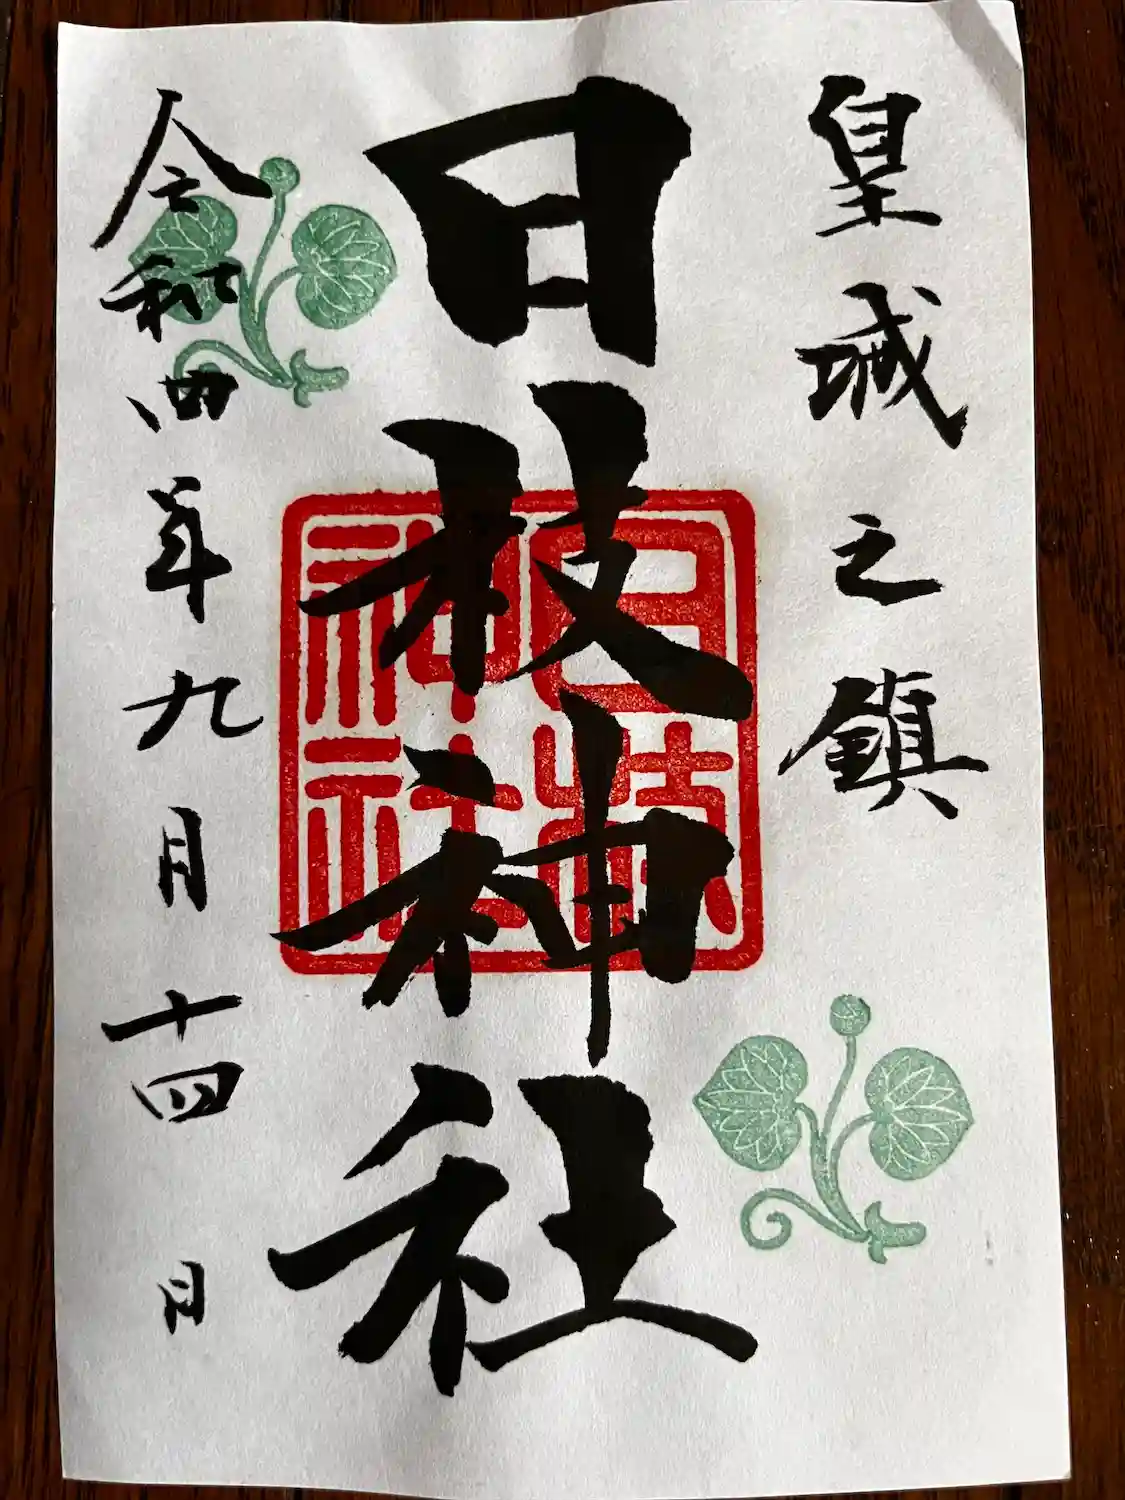 皇城之鎮
日枝神社
日枝神社
令和四年九月十四日